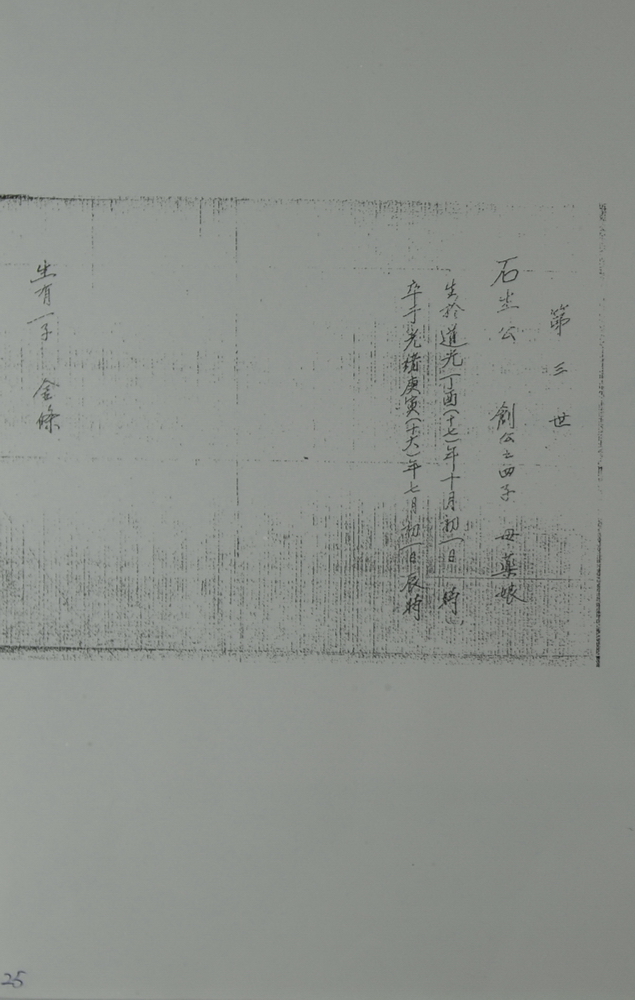 第三世
石坐公 創公之四子 母藥娘
生於道光丁酉(十七)年十月初一日 時
卒于光緒庚寅(十六)年七月初一日辰時
生有一子 金條
25